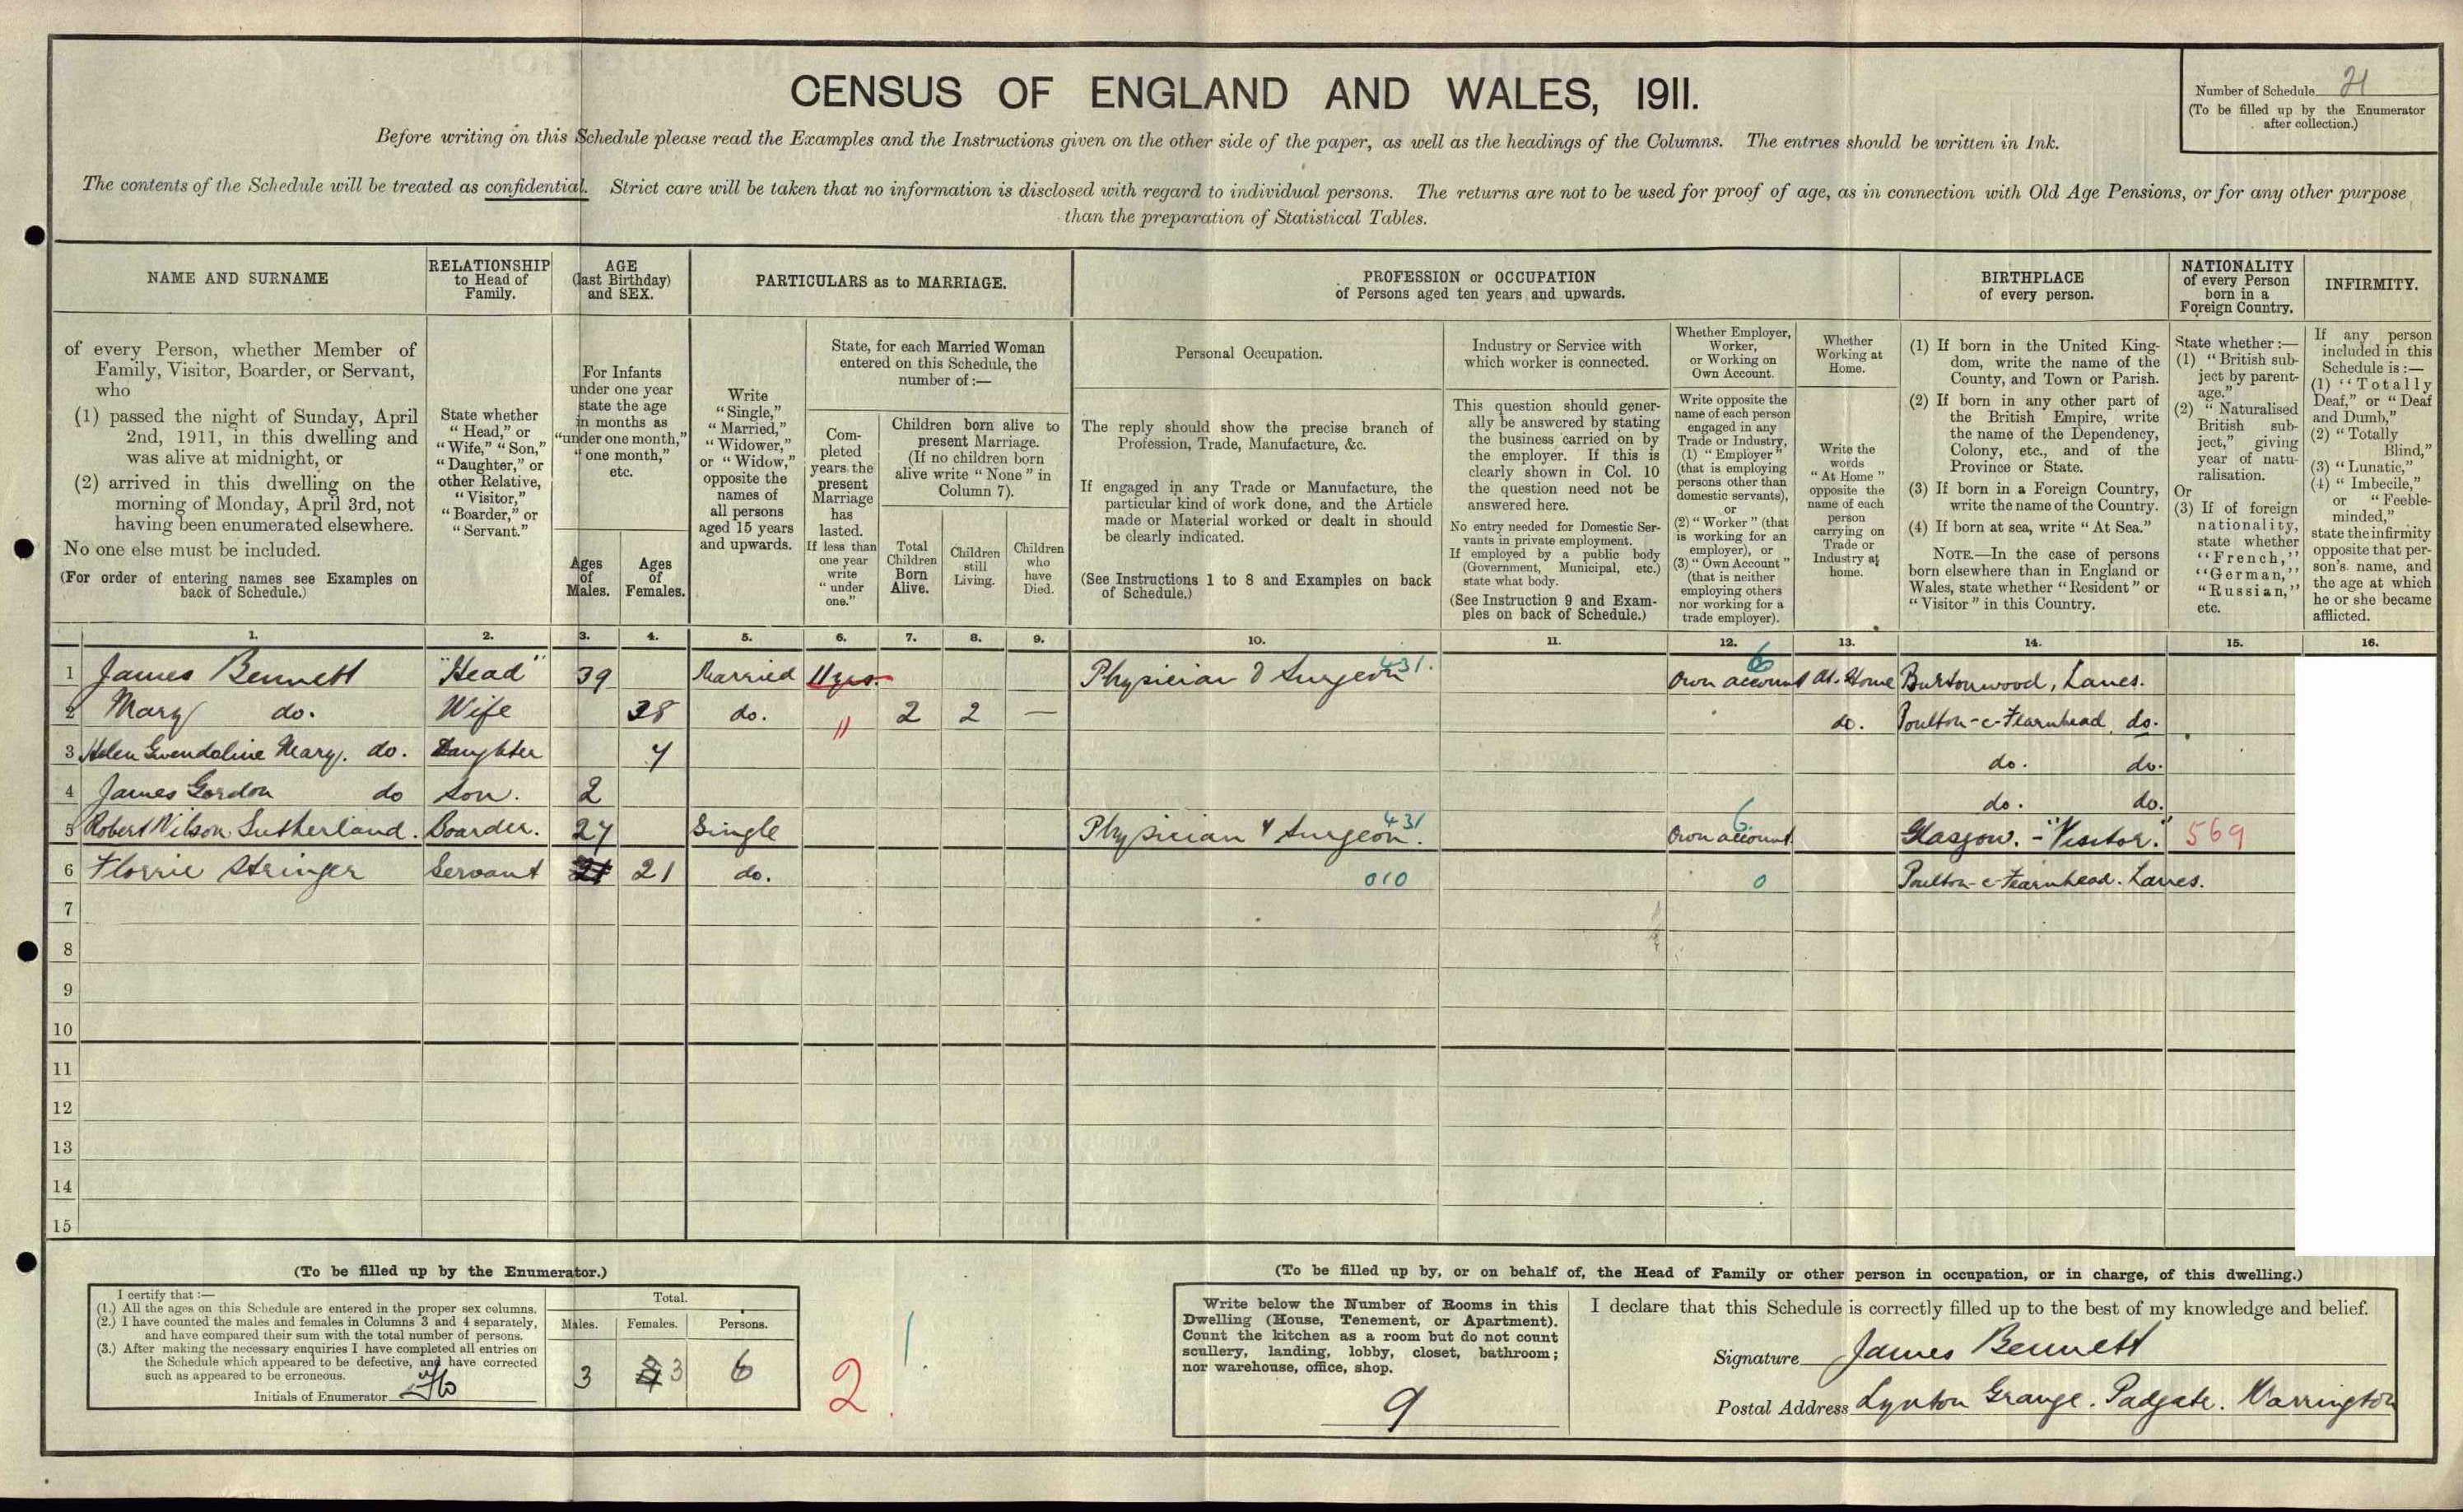 CENSUS OF ENGLAND AND WALES, 1911.
Number of Schedule 21
(To be filled up by the Enumerator
after collection.)
Before writing on this Schedule please read the Examples and the Instructions given on the other side of the paper, as well as the headings of the Columns. The entries should be written in Ink.
The contents of the Schedule will be treated as confidential. Strict care will be taken that no information is disclosed with regard to individual persons. The returns are not to be used for proof of age, as in connection with Old Age Pensions, or for any other purpose
than the preparation of Statistical Tables.
NAME AND SURNAME
of every Person, whether Member of
Family, Visitor, Boarder, or Servant,
who
(1) passed the night of Sunday, April
2nd, 1911, in this dwelling and
was alive at midnight, or
(2) arrived in this dwelling on the
morning of Monday, April 3rd, not
having been enumerated elsewhere.
No one else must be included.
(For order of entering names see Examples on
back of Schedule.)
RELATIONSHIP
to Head of
Family.
State whether
"Head," or
"Wife," "Son,"
"Daughter," or
other Relative,
"Visitor,"
"Boarder," or
"Servant."
AGE
(last Birthday)
and SEX.
For Infants
under one year
state the age
in months as
"under one month,"
"one month,"
etc.
Ages
of
Males.
Ages
of
Females.
PARTICULARS as to MARRIAGE.
Write
"Single,"
"Married,"
"Widower,"
or "Widow,"
opposite the
names of
all persons
aged 15 years
and upwards.
State, for each Married Woman
entered on this Schedule, the
number of :—
Com-
pleted
years the
present
Marriage
has
lasted.
If less than
one year
write
"under
one."
Children born alive to
present Marriage.
(If no children born
alive write "None" in
Column 7).
Total
Children
Born
Alive.
Children
still
Living.
Children
who
have
Died.
PROFESSION or OCCUPATION
of Persons aged ten years and upwards.
Personal Occupation.
The reply should show the precise branch of
Profession, Trade, Manufacture, &c.
If engaged in any Trade or Manufacture, the
particular kind of work done, and the Article
made or Material worked or dealt in should
be clearly indicated.
(See Instructions 1 to 8 and Examples on back
of Schedule.)
Industry or Service with
which worker is connected.
This question should gener-
ally be answered by stating
the business carried on by
the employer. If this is
clearly shown in Col. 10
the question need not be
answered here.
No entry needed for Domestic Ser-
vants in private employment.
If employed by a public body
(Government, Municipal, etc.)
state what body.
(See Instruction 9 and Exam-
ples on back of Schedule.)
Whether Employer,
Worker,
or Working on
Own Account.
Write opposite the
name of each person
engaged in any
Trade or Industry,
(1) "Employer"
(that is employing
persons other than
domestic servants),
or
(2) "Worker" (that
is working for an
employer), or
(3) "Own Account"
(that is neither
employing others
nor working for a
trade employer).
Whether
Working at
Home.
Write the
words
"At Home"
opposite the
name of each
person
carrying on
Trade or
Industry at
home.
BIRTHPLACE
of every person.
(1) If born in the United King-
dom, write the name of the
County, and Town or Parish.
(2) If born in any other part of
the British Empire, write
the name of the Dependency,
Colony, etc., and of the
Province or State.
(3) If born in a Foreign Country,
write the name of the Country.
(4) If born at sea, write "At Sea."
NOTE.—In the case of persons
born elsewhere than in England or
Wales, state whether "Resident" or
"Visitor" in this Country.
NATIONALITY
of every Person
born in a
Foreign Country.
State whether :—
(1) "British sub-
ject by parent-
age."
(2) "Naturalised
British sub-
ject," giving
year of natu-
ralisation.
Or
(3) If of foreign
nationality,
state whether
"French,"
"German,"
"Russian,"
etc.
INFIRMITY.
If any person
included in this
Schedule is :—
(1) "Totally
Deaf," or "Deaf
and Dumb,"
(2) "Totally
Blind,"
(3) "Lunatic,"
(4) "Imbecile,"
or "Feeble-
minded,"
state the infirmity
opposite that per-
son's name, and
the age at which
he or she became
afflicted.
1. 2. 3. 4. 5. 6. 7. 8. 9. 10. 11. 12. 13. 14. 15. 16.
1 James Bennett "Head" 39 Married 11 yrs. Physician & Surgeon 431. Own account 6 At Home Burtonwood, Lancs.
2 Mary do. Wife 38 do. 11 2 2 — do. Poulton-c-Fearnhead do.
3 Helen Gwendoline Mary. do. Daughter 7 do. do.
4 James Gordon do Son. 2 do. do.
5 Robert Wilson Sutherland. Boarder. 27 Single Physician & Surgeon. 431 Own account 6 Glasgow. - "Visitor." 569
6 Florrie Stringer Servant 21 21 do. 010 0 Poulton-c-Fearnhead. Lancs.
7
8
9
10
11
12
13
14
15
(To be filled up by the Enumerator.)
I certify that :—
(1.) All the ages on this Schedule are entered in the proper sex columns.
(2.) I have counted the males and females in Columns 3 and 4 separately,
and have compared their sum with the total number of persons.
(3.) After making the necessary enquiries I have completed all entries on
the Schedule which appeared to be defective, and have corrected
such as appeared to be erroneous.
Initials of Enumerator
Total.
Males. Females. Persons.
3 3 6
2
1.
(To be filled up by, or on behalf of, the Head of Family or other person in occupation, or in charge, of this dwelling.)
Write below the Number of Rooms in this
Dwelling (House, Tenement, or Apartment).
Count the kitchen as a room but do not count
scullery, landing, lobby, closet, bathroom;
nor warehouse, office, shop.
9
I declare that this Schedule is correctly filled up to the best of my knowledge and belief.
Signature James Bennett
Postal Address Lynton Grange. Padgate. Warrington